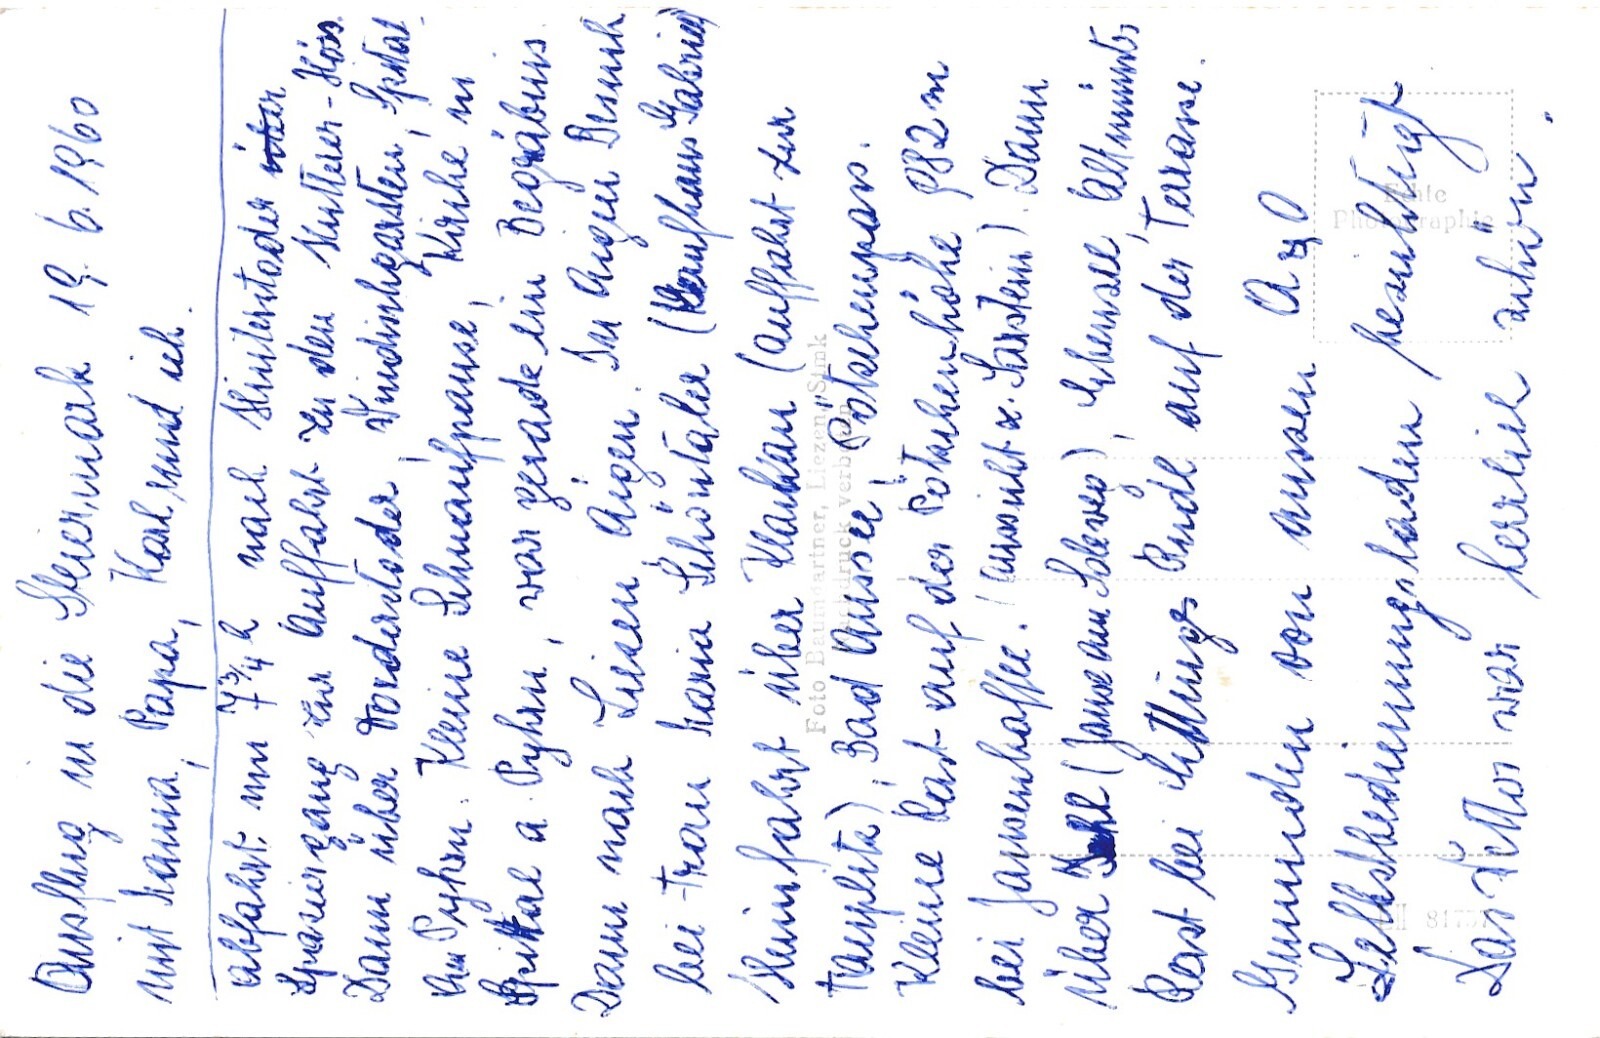 Ausflug in die Steiermark 19. 6. 1960
mit Mama, Papa, Karl und ich.
Abfahrt: um 7 3/4 h nach Hinterstoder
Spaziergang zur Auffahrt zu den Hutterer-Höss.
Dann über Vorderstoder, Windischgarsten, Spital
am Pyhrn. Kleine Schnaufpause, Kirche in
Spital a. Pyhrn, war gerade ein Begräbnis
Dann nach Liezen Aigen. In Aigen Besuch
bei Frau Maria Schöntaler (Kaufhaus Gabriel)
Heimfahrt über Klachau (Auffahrt zur
Tauplitz), Bad Aussee, Pötschenpass.
Kleine Rast auf der Pötschenhöhe 982 m
bei Jausenkaffee. (Aussicht z. Sarstein). Dann
über Ischl (Jause am Soleweg), Ebensee, Altmünster
Rast bei Rudl auf der Terrasse.
Gmunden von aussen A & O
Selbstbedienungsladen besichtigt
Das Wetter war herrlich schön.
Echte
Photographie
Foto Baumgartner, Liezen, Stmk
Nachdruck verboten